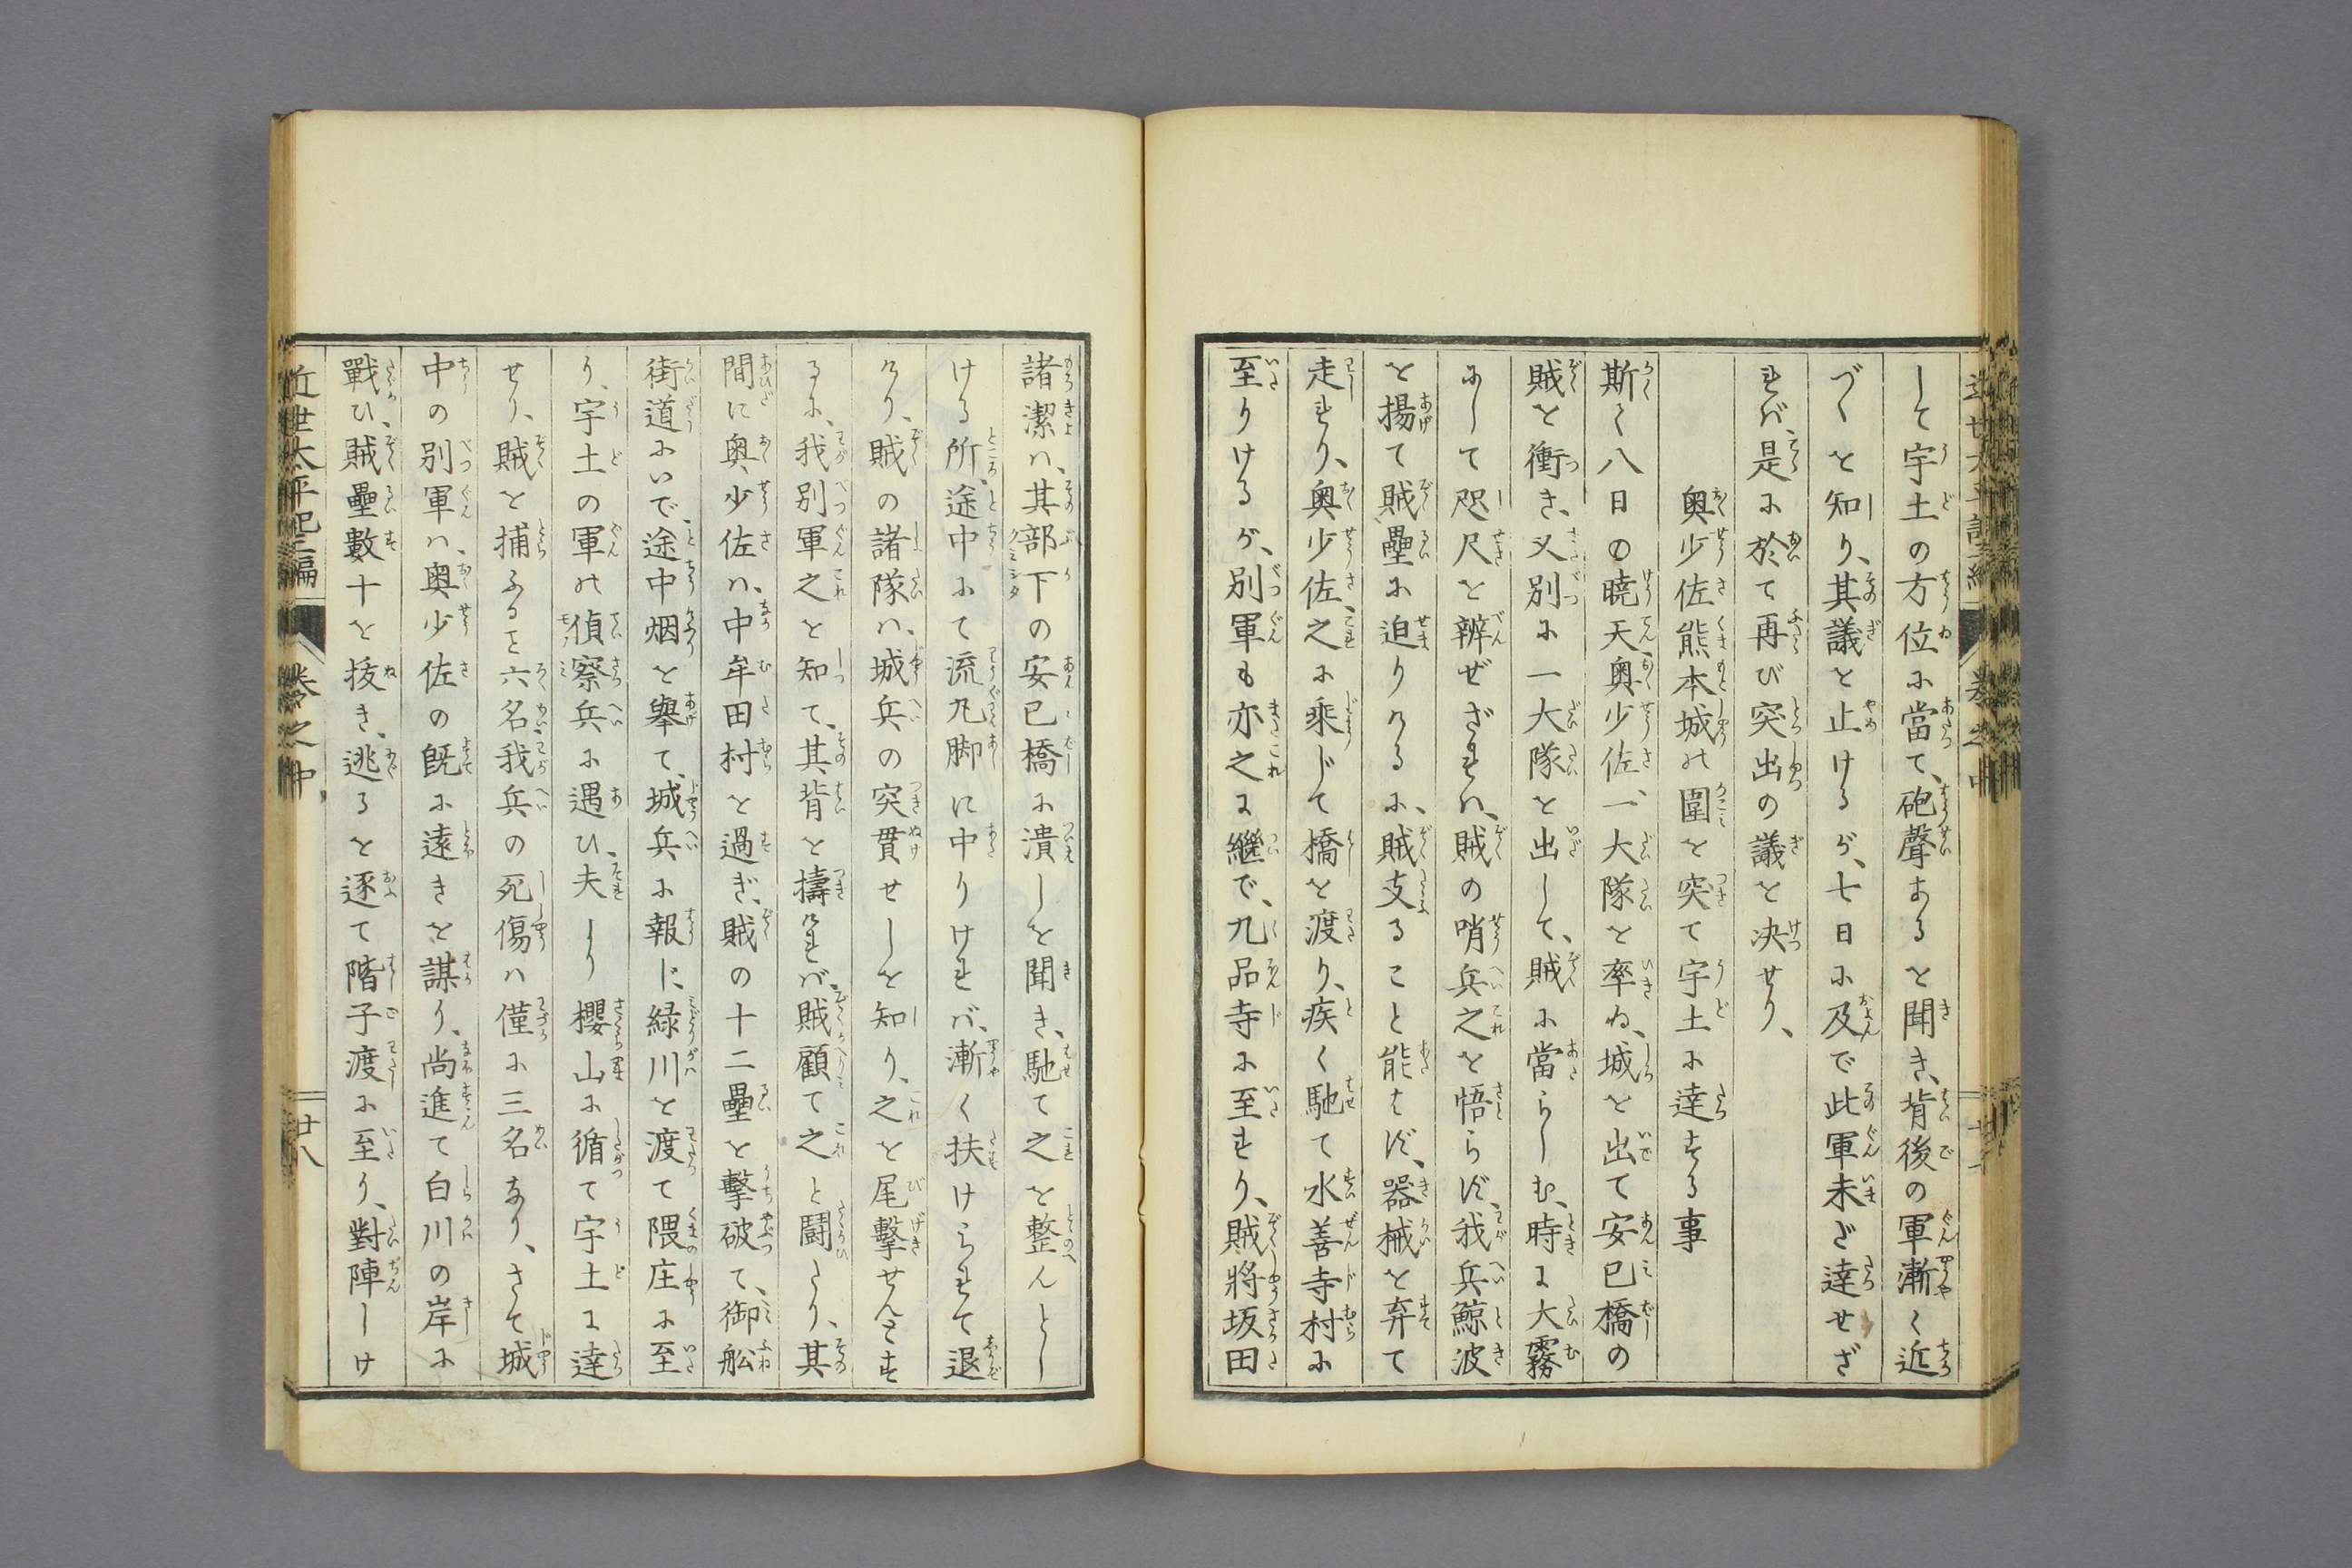 して宇土の方位に當て、砲聲あるを聞き、背後の軍漸く近
づくを知り、其議を止けるが、七日に及で此軍未ざ達せざ
れバ、是に於て再び突出の議を决せり、
奥少佐熊本城の圍を突て宇土に達する事
斯く八日の暁天奥少佐、一大隊を率ゐ、城を出て安巳橋の
賊を衝き、又別に一大隊を出して、賊に當らしむ、時に大霧
にして咫尺を辨ぜざれバ、賊の哨兵之を悟らず、我兵鯨波
を揚て賊壘に迫りけるに、賊支ること能はず、器械を弃て
走れり、奥少佐、之に乘じて橋を渡り、疾く馳て水善寺村に
至りけるが、別軍も亦之に繼で、九品寺に至れり、賊將坂田
諸潔ハ、其部下の安已橋に潰しを聞き、馳て之を整んとし
ける所、途中にて流丸脚に中りけれバ、漸く扶けられて退
けり、賊の諸隊ハ、城兵の突貫せしを知り、之を尾擊せんとす
るに、我別軍之を知て、其背を擣けれバ、賊顧て之と鬪たり、其
間に奥少佐ハ、中牟田村を過ぎ、賊の十二壘を擊破て、御舩
街道にいで、途中烟を擧て、城兵に報じ、緑川を渡て隈庄に至
り、宇土の軍の偵察兵に遇ひ、夫より櫻山に循て宇土に達
せり、賊を捕ふると六名、我兵の死傷ハ僅に三名なり、さて城
中の別軍ハ、奥少佐の旣に遠きを謀り、尚進て白川の岸に
戰ひ、賊壘數十を拔き、逃るを逐て階子渡に至り、對陣しけ
近世太平記二編　卷之中　廿八